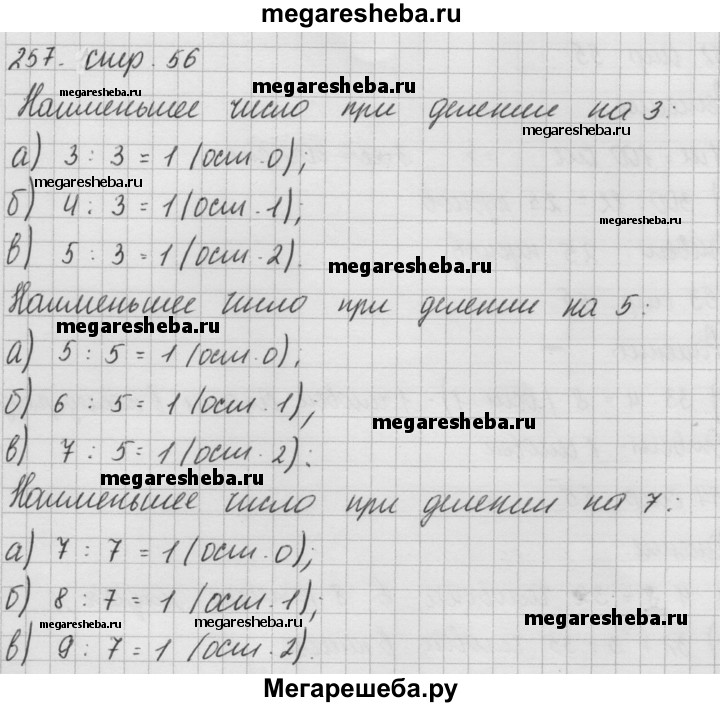 megaresheba.ru
257. стр. 56
megaresheba.ru
megaresheba.ru
Наименьшее число при делении на 3:
megaresheba.ru
а) 3 : 3 = 1 (ост. 0);
megaresheba.ru
б) 4 : 3 = 1 (ост. 1);
megaresheba.ru
в) 5 : 3 = 1 (ост. 2).
megaresheba.ru
Наименьшее число при делении на 5:
megaresheba.ru
а) 5 : 5 = 1 (ост. 0);
б) 6 : 5 = 1 (ост. 1);
megaresheba.ru
в) 7 : 5 = 1 (ост. 2):
megaresheba.ru
Наименьшее число при делении на 7:
а) 7 : 7 = 1 (ост. 0);
б) 8 : 7 = 1 (ост. 1);
megaresheba.ru
megaresheba.ru
megaresheba.ru
в) 9 : 7 = 1 (ост. 2).
Мегарешеба.ру